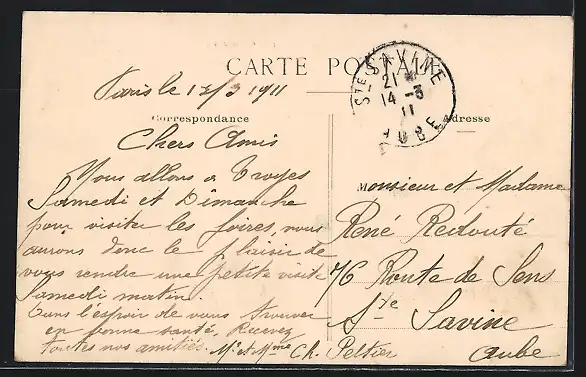 CARTE POSTALE
Paris le 12/3 1911
STE SAVINE
21
14 - 3
11
AUBE
Correspondance
Adresse
Chers Amis
Nous allons a Troyes
Samedi et Dimanche
pour visiter les foires, nous
aurons donc le plaisir de
vous rendre une petite visite
Samedi matin.
Dans l'espoir de vous trouver
en bonne santé, Recevez
toutes nos amitiés. Mr et Mme Ch. Peltier
Monsieur et Madame
René Redouté
76 Route de Sens
Ste Savine
Aube